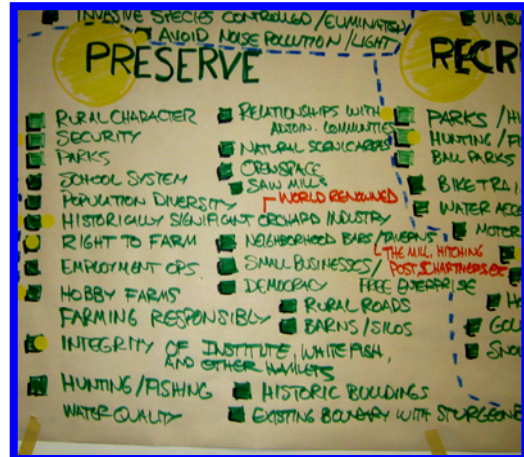 INVASIVE SPECIES CONTROLLED / ELIMINATED
AVOID NOISE POLLUTION / LIGHT
PRESERVE
RURAL CHARACTER
SECURITY
PARKS
SCHOOL SYSTEM
POPULATION DIVERSITY
HISTORICALLY SIGNIFICANT ORCHARD INDUSTRY
WORLD RENOWNED
RIGHT TO FARM
EMPLOYMENT OPS
HOBBY FARMS
FARMING RESPONSIBLY
INTEGRITY OF INSTITUTE, WHITEFISH,
AND OTHER HAMLETS
HUNTING / FISHING
WATER QUALITY
RELATIONSHIPS WITH
ADJOIN. COMMUNITIES
NATURAL SCENIC AREAS
OPEN SPACE
SAW MILLS
NEIGHBORHOOD BARS / TAVERNS
THE MILL, HITCHING
POST,
SMALL BUSINESSES /
FREE ENTERPRISE
DEMOCRACY
RURAL ROADS
BARNS / SILOS
HISTORIC BUILDINGS
EXISTING BOUNARY WITH STURGEON
RECR
PARKS /
HUNTING /
BALL PARKS
BIKE TRAI
WATER ACC
MOTOR
GOL
SNO